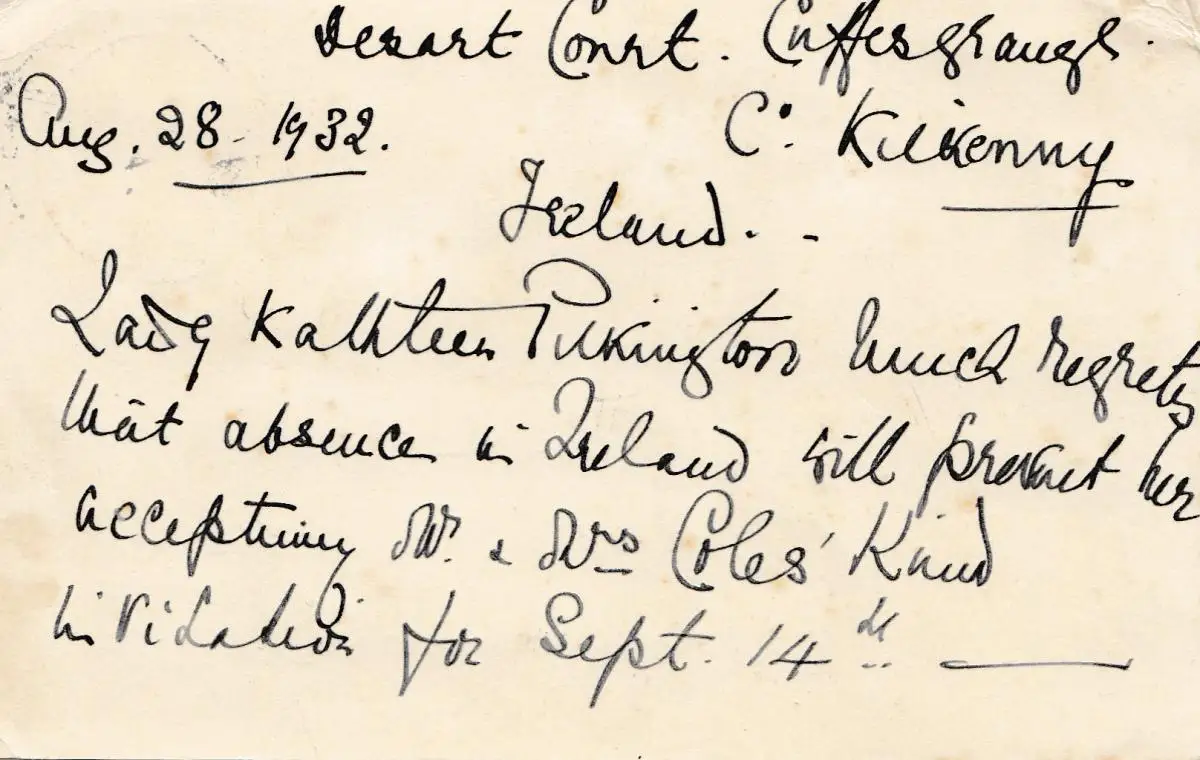 Desart Court. Cuffesgrange.
Aug. 28 - 1932.
Co. Kilkenny
Ireland. -
Lady Kathleen Pilkington much regrets
that absence in Ireland will prevent her
accepting Mr. & Mrs Coles' kind
invitation for Sept. 14th